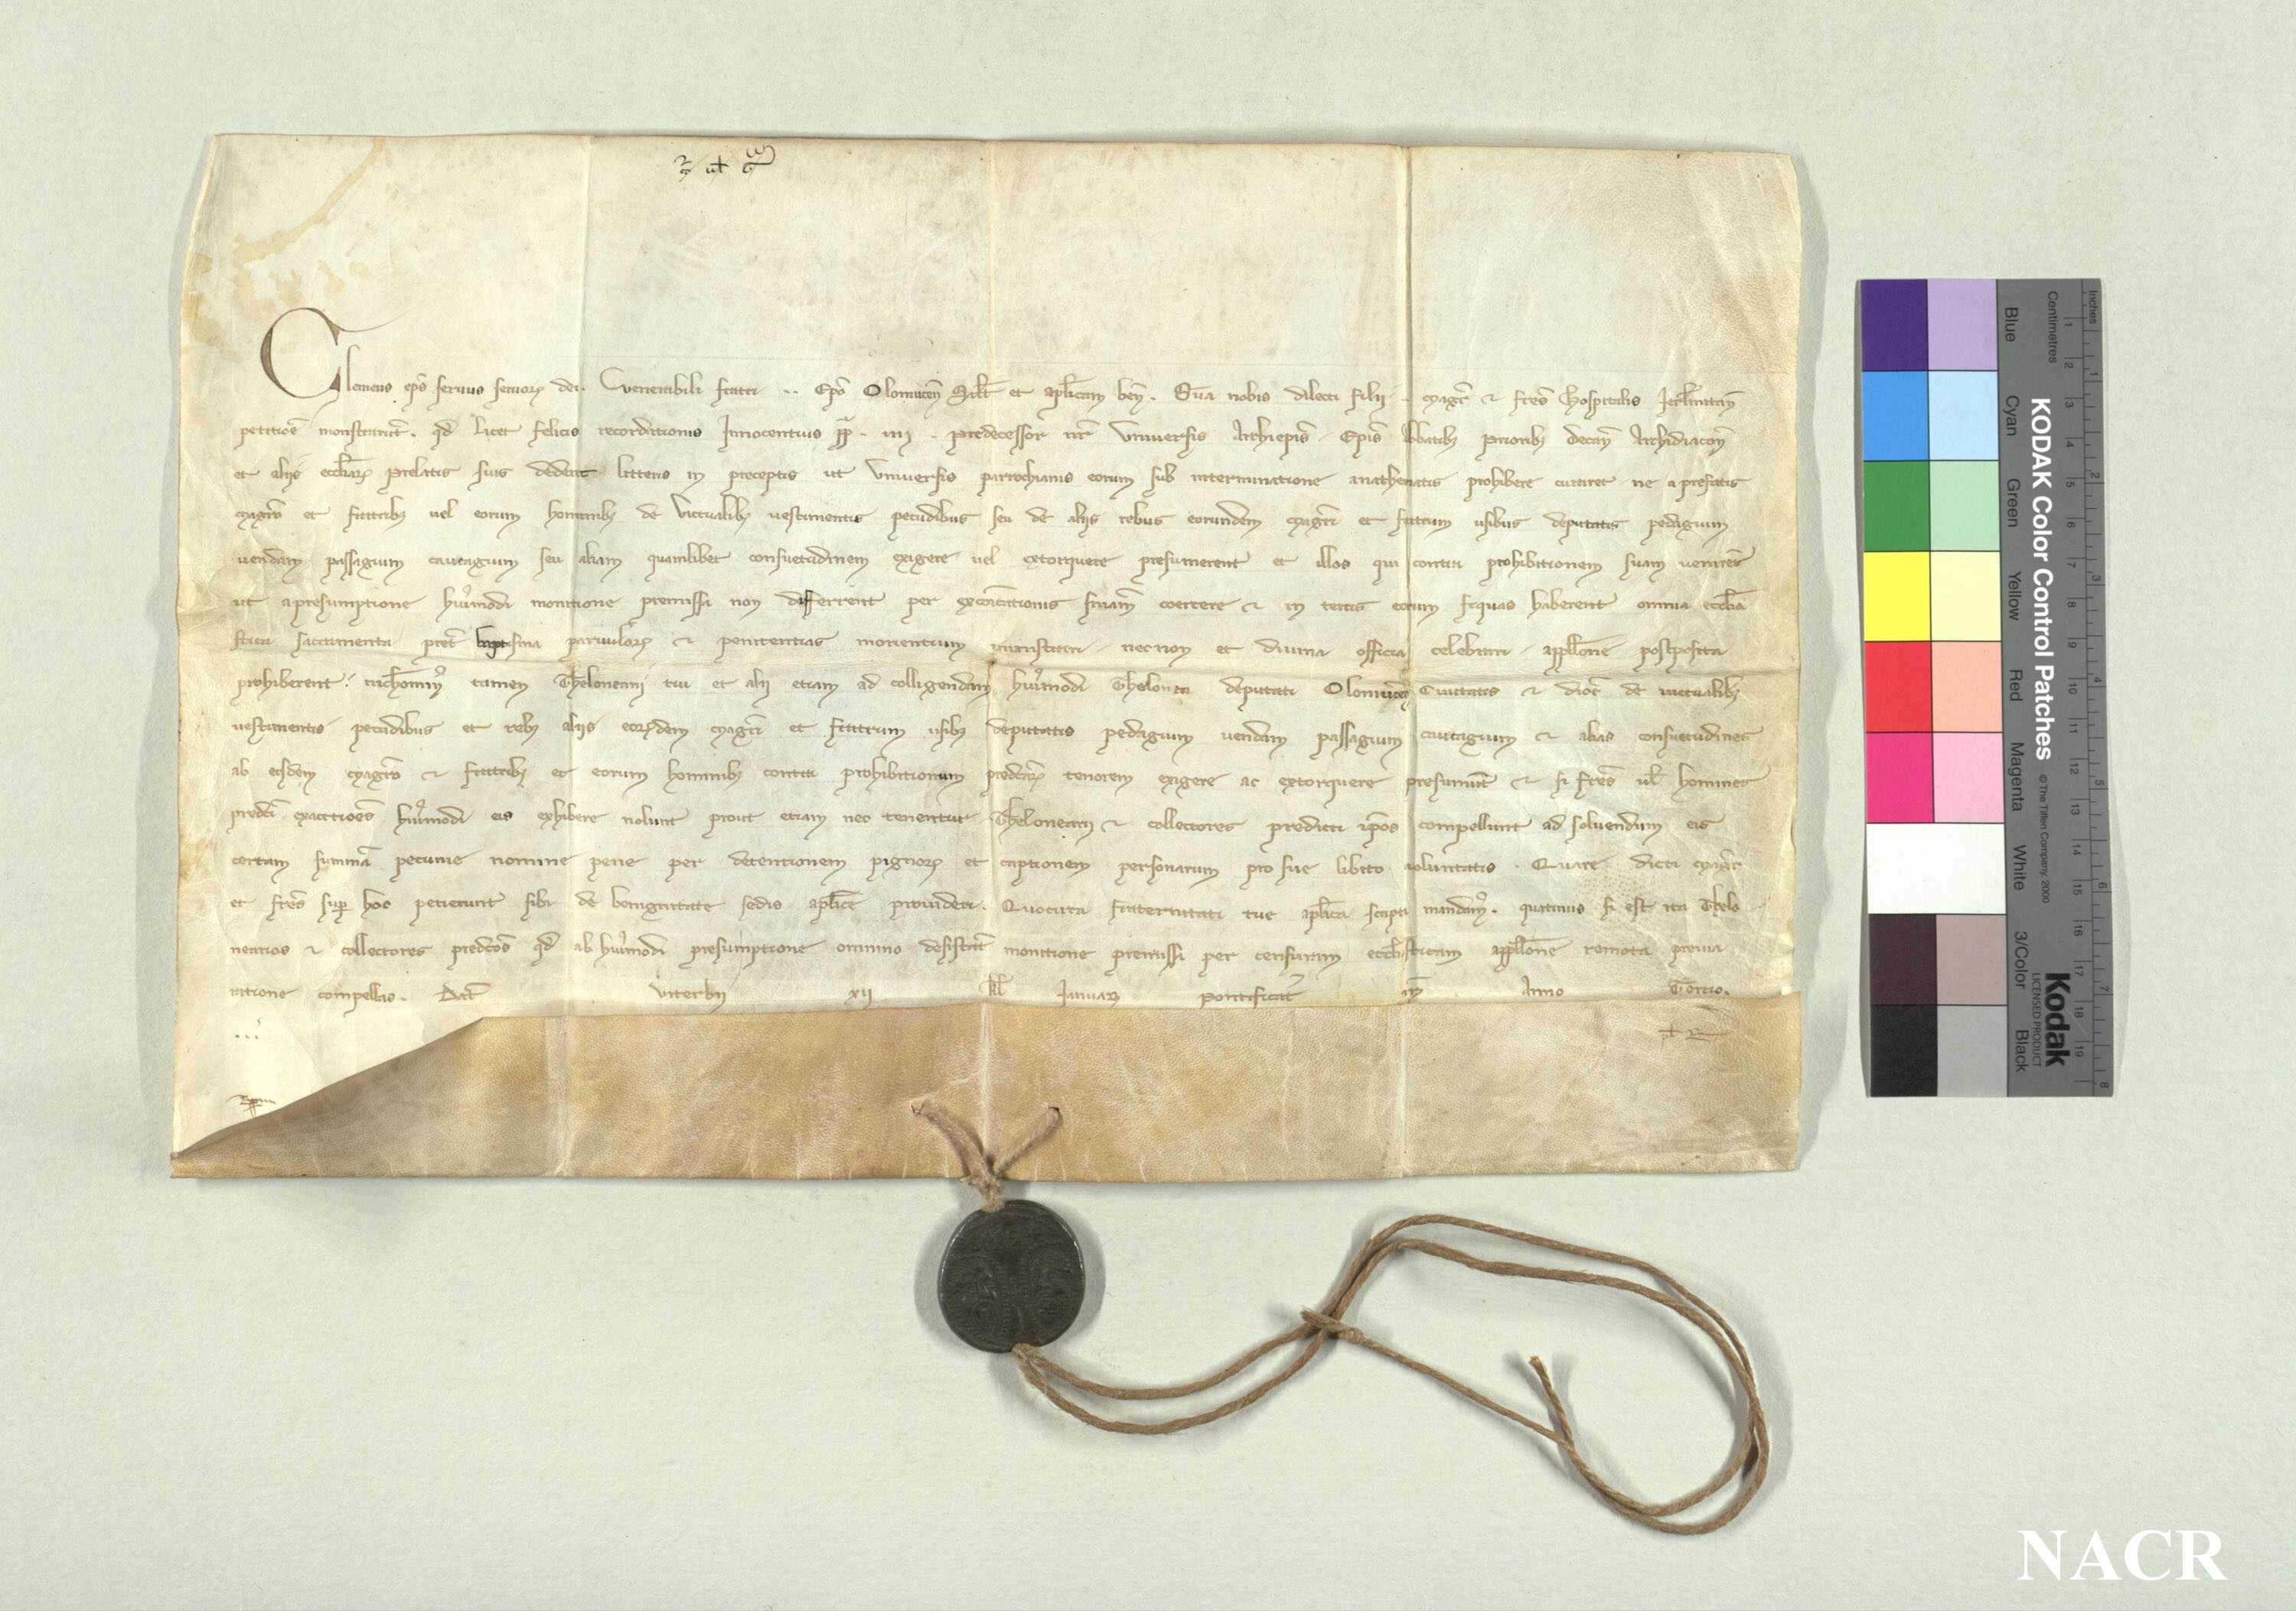 Clemens ep̄s seruus seruoꝝ dei. Venerabili fratri .. Ep̄o Olomucen̄ Sal̄t et ap̄licam ben̄. Sua nobis dilecti filij .. Magr̄ ⁊ fr̄es Hospitalis Jerl̄imitan̄
petitiōe monstrarūt. qd̄ licet felicis recordationis Innocentius pp̄ . iiij . predecessor nr̄ Vniuersis Archiep̄is Ep̄is Abbatibꝫ Prioribꝫ Decan̄ Archidiacon̄
et alijs eccl̄iaꝝ prelatis suis dederit litteris in preceptis ut Vniuersis parrochianis eorum sub interminatione anathematis prohibere curaret ne a prefatis
Magrō et fratribꝫ uel eorum hominibꝫ de Victualibꝫ uestimentis pecudibus seu de alijs rebus eorundem Magrī et fratrum usibus deputatis pedagium
uendam passagium caucagium seu aliam quamlibet consuetudinem exigere uel extorquere presumerent et illos qui contra prohibitionem suam uenirēt
ut a presumptione huiꝰmodi monitione premissa non differrent per excōicationis sn̄iam coercere ⁊ in terris eorum siquas haberent omnia eccl̄ia
stica sacramenta pret̄ baptisma paruuloꝝ ⁊ penitentias morientium ministrari necnon et diuina officia celebrari appll̄one postposita
prohiberent. nichomīꝰ tamen Thelonearij tui et alij etiam ad colligendam huiꝰmodi Thelonea deputati Olomucen̄ Ciuitatis ⁊ dioc̄ de uictualibꝫ
uestimentis pecudibus et rebꝫ alijs eoꝝdem Magrī et fratrum usibꝫ deputatis pedagium uendam passagium caucagium ⁊ alias consuetudines
ab eisdem Magrō ⁊ fratribꝫ et eorum hominibꝫ contra prohibitionum predc̄aꝝ tenorem exigere ac extorquere presumūt ⁊ si fr̄es ul̄ homines
predc̄i exactiōes huiꝰmodi eis exhibere nolunt prout etiam nec tenentur Thelonearij ⁊ collectores predicti ip̄os compellunt ad soluendum eis
certam summā pecunie nomine pene per detentionem pignoꝝ et captionem personarum pro sue libito uoluntatis . Quare dicti Magr̄
et fr̄es suꝑ hoc petierunt sibi de benignitate sedis ap̄lice prouideri. Quocirca fraternitati tue ap̄lica scripta mandamꝰ. quatinus si est ita Thelo
nearios ⁊ collectores predc̄os qd̄ ab huiꝰmodi presumptione omnino desistāt monitione premissa per censuram eccl̄iasticam appll̄one remota preuia
ratione compellas. Dat̄ Viterbij xij kl̄ Januarij Pontificatꝰ nr̄i Anno Tertio.